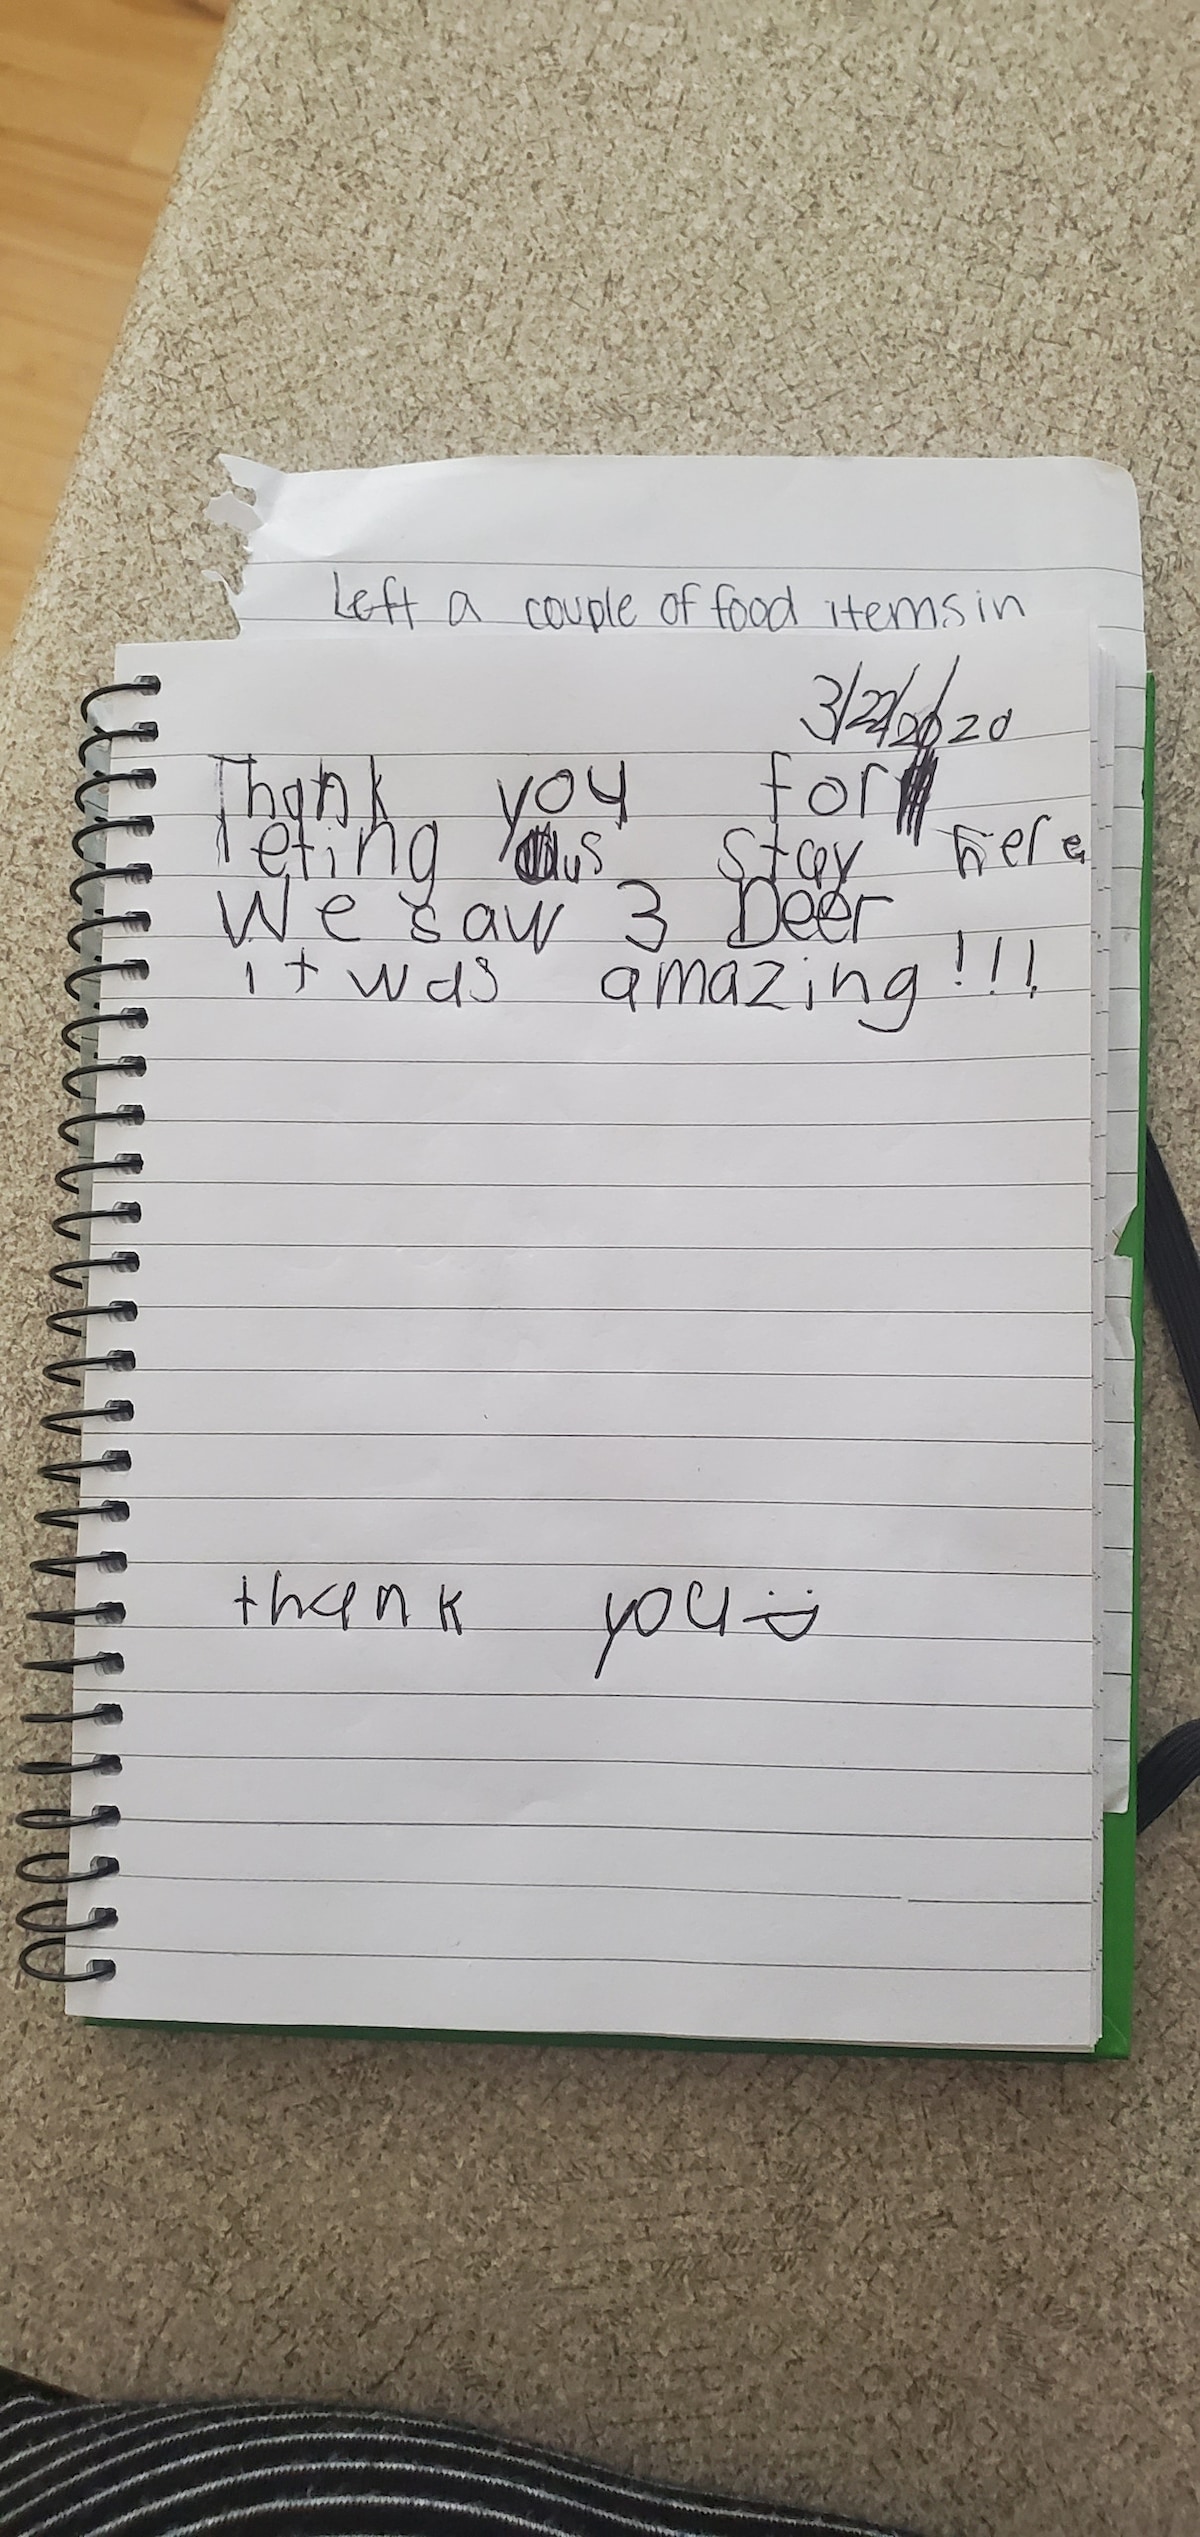 Left a couple of food items in
3/22/2020
Thank you for
leting us stay here
We saw 3 Deer
it was amazing!!!
thank you :D